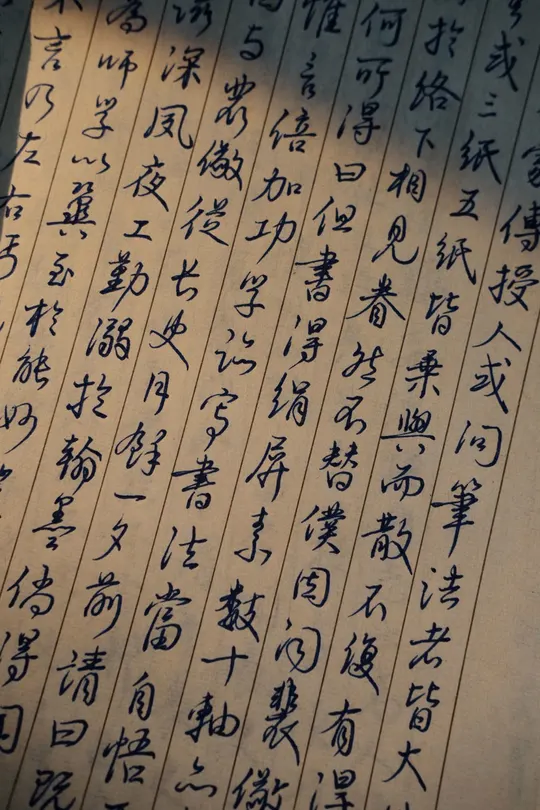 傳授人或問筆法者皆大
或三紙五紙皆乗興而散不復有得
於洛下相見眷然不替僕因問裴儆
何所得曰但書得絹屏素數十軸亦
惟言倍加功學臨寫書法當自悟
與裴儆從長史月餘一夕前請曰既
滋深夙夜工勤溺於翰墨倘得聞
為師學以冀至於能妙
言乃左右眄